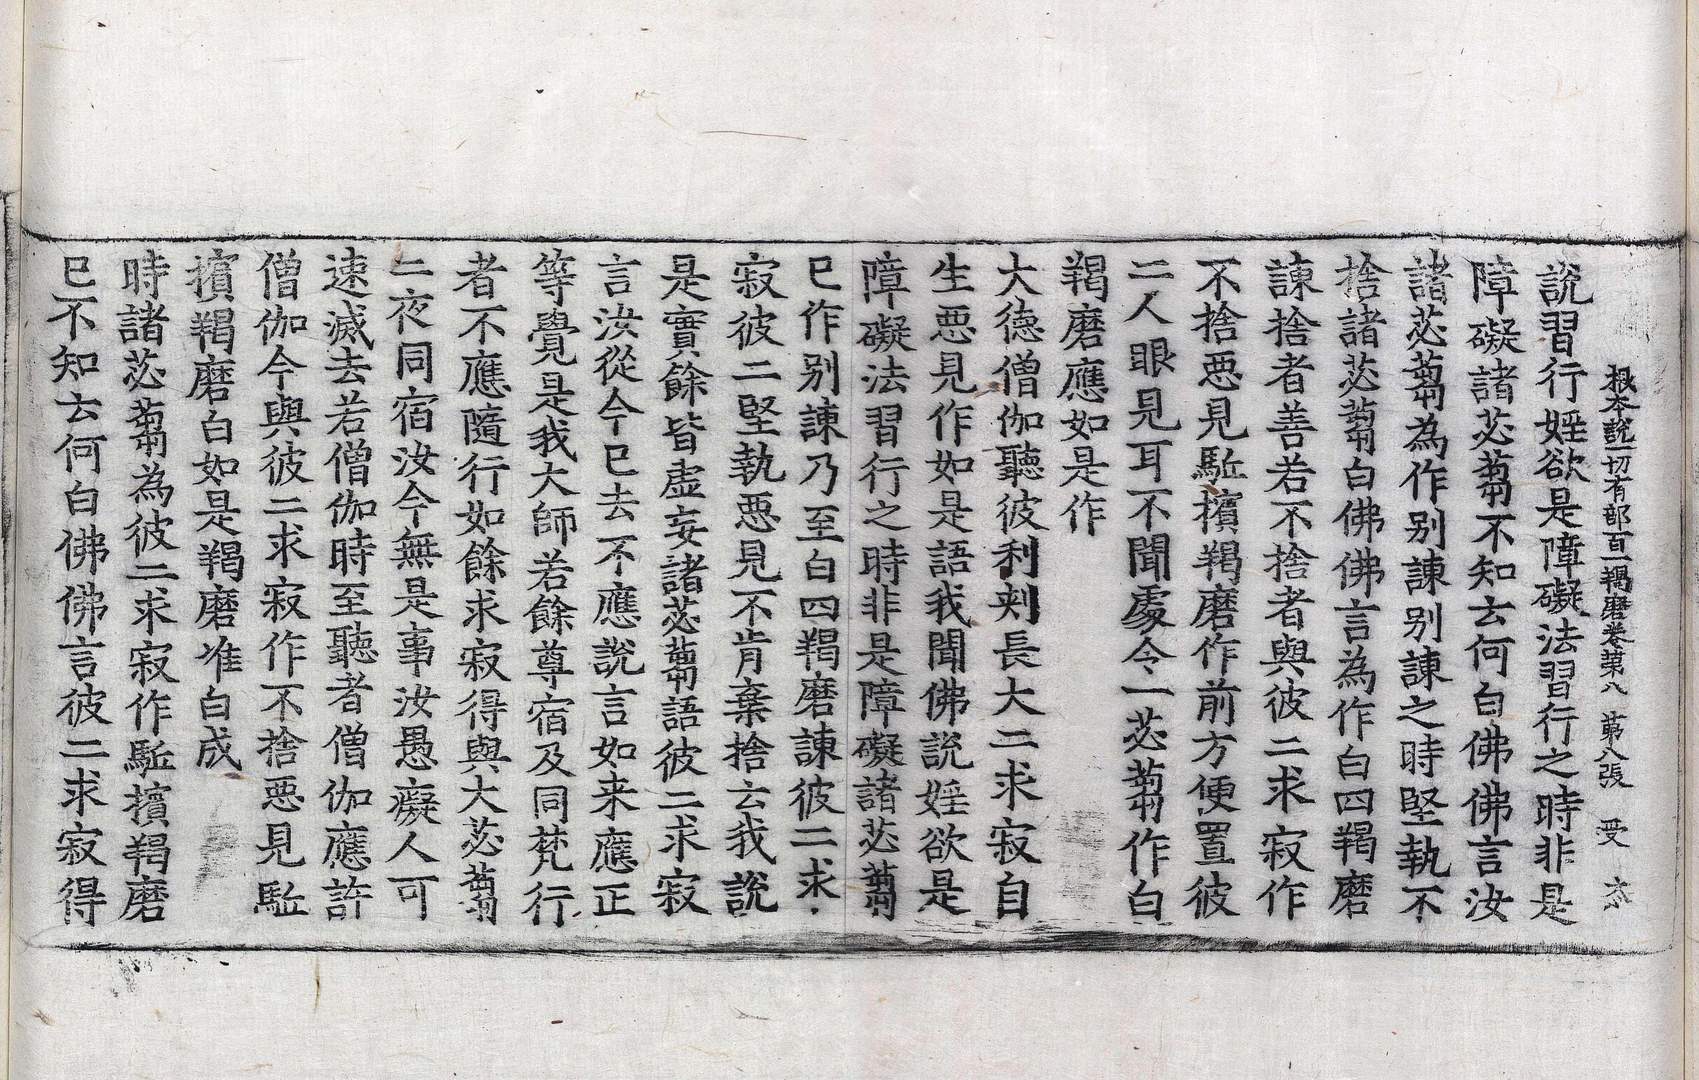 根本說一切有部百一羯磨卷第八 第八張 受
說習行婬欲是障礙法習行之時非是
障礙諸苾蒭不知云何白佛佛言汝
諸苾蒭為作别諫别諫之時堅執不
捨諸苾蒭白佛佛言為作白四羯磨
諫捨者善若不捨者與彼二求寂作
不捨惡見駈擯羯磨作前方便置彼
二人眼見耳不聞處令一苾蒭作白
羯磨應如是作
大德僧伽聽彼利刾長大二求寂自
生惡見作如是語我聞佛說婬欲是
障礙法習行之時非是障礙諸苾蒭
已作别諫乃至白四羯磨諫彼二求
寂彼二堅執惡見不肯棄捨云我說
是實餘皆虛妄諸苾蒭語彼二求寂
言汝從今已去不應說言如来應正
等覺是我大師若餘尊宿及同梵行
者不應隨行如餘求寂得與大苾蒭
二夜同宿汝今無是事汝愚癡人可
速滅去若僧伽時至聽者僧伽應許
僧伽今與彼二求寂作不捨惡見駈
擯羯磨白如是羯磨准白成
時諸苾蒭為彼二求寂作駈擯羯磨
已不知云何白佛佛言彼二求寂得